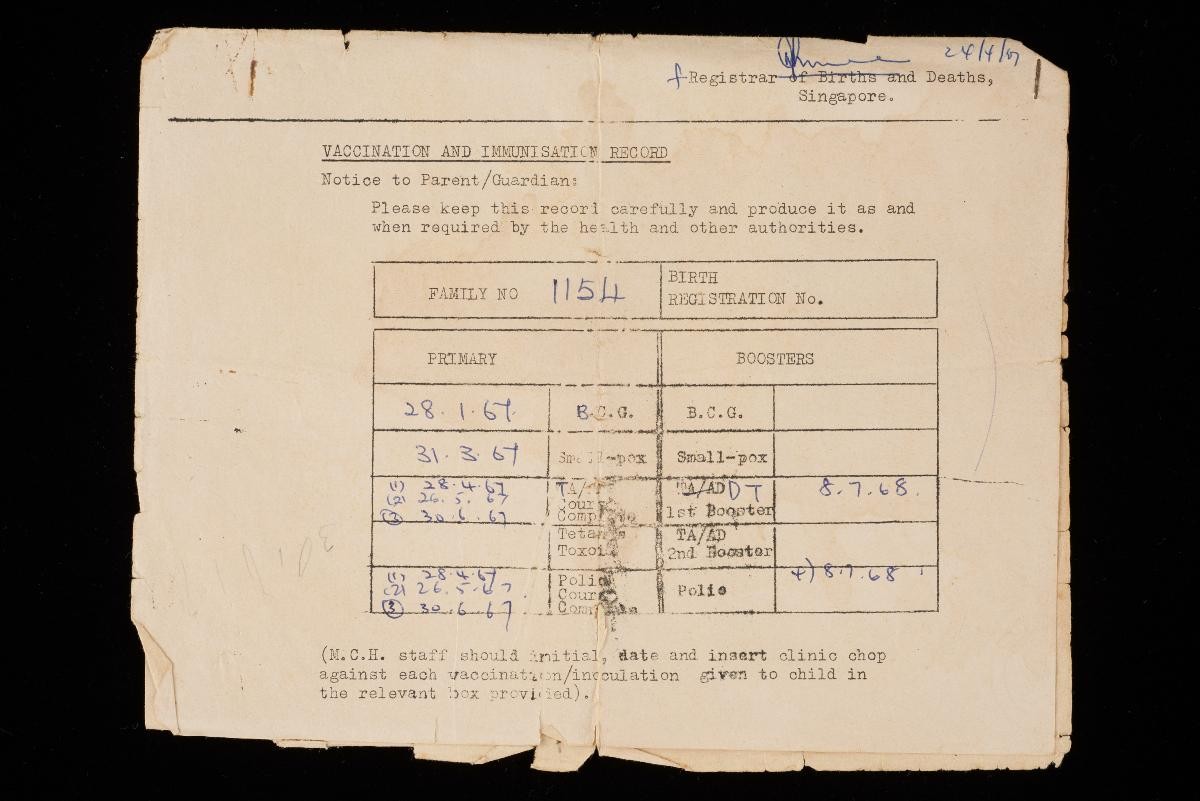 24/4/67
f Registrar of Births and Deaths,
Singapore.
VACCINATION AND IMMUNISATION RECORD
Notice to Parent/Guardian:
Please keep this record carefully and produce it as and
when required by the health and other authorities.
FAMILY NO 1154
BIRTH
REGISTRATION No.
PRIMARY
BOOSTERS
28.1.67. B.C.G. B.C.G.
31.3.67 Small-pox Small-pox
(1) 28.4.67
(2) 26.5.67
(3) 30.6.67
TA/AD DT
1st Booster
8.7.68.
Toxoid
TA/AD
2nd Booster
(1) 28.4.67
(2) 26.5.67.
(3) 30.6.67
Polio
Polio
4) 8.7.68
(M.C.H. staff should initial, date and insert clinic chop
against each vaccination/inoculation given to child in
the relevant box provided).